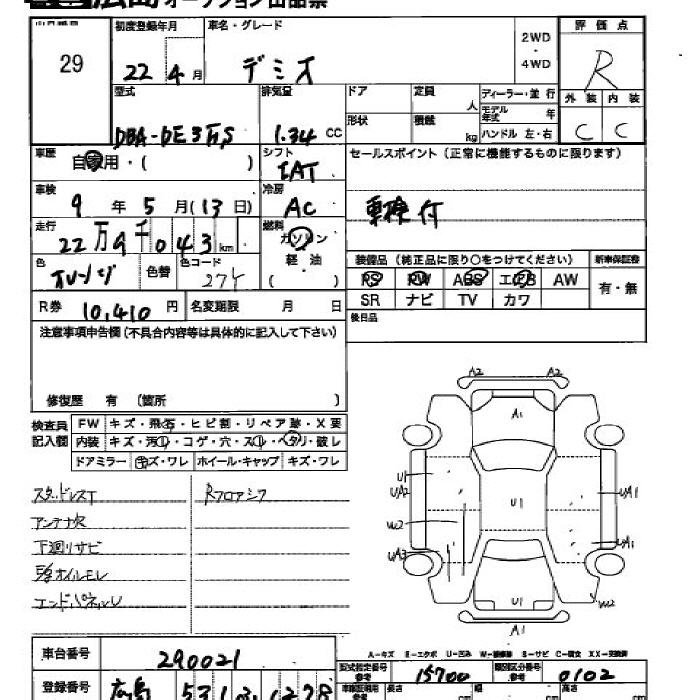 広島 オークション出品票
29
初度登録年月
22年4月
車名・グレード
デミオ
2WD
・
4WD
評価点
R
外装 内装
C C
型式
DBA-DE3FS
排気量
1.34 CC
ドア
定員
人
ディーラー・並行
モデル年式 年
形状
積載
kg
ハンドル 左・右
車歴
自家用・( )
シフト
IAT
セールスポイント(正常に機能するものに限ります)
車検付
車検
9年5月(13日)
冷房
AC
走行
22万9千043km
燃料
ガソリン
軽油
( )
色
オレンジ
色替
色コード
27Y
装備品(純正品に限り○をつけてください)
新車保証書
PS PW ABS エアB AW
有・無
SR ナビ TV カワ
R券 10,410円
名変期限 月 日
後日品
注意事項申告欄(不具合内容等は具体的に記入して下さい)
修復歴 有 〔箇所 〕
検査員記入欄
FW キズ・飛石・ヒビ割・リペア跡・X要
内装 キズ・汚・コゲ・穴・スレ・ヘタリ・破レ
ドアミラー キズ・ワレ ホイール・キャップ キズ・ワレ
スタッドレスT
Rフロアシワ
アンテナ欠
下廻りサビ
オイルモレ
エンドパネルU
A2 A2
A1
U1
UA2
U1
UA1
W2
UA3
UA1
W2
U1
A1
A-キズ E-エクボ U-凹み W-補修跡 S-サビ C-腐食 XX-交換済
車台番号
290021
型式指定番号 参考
15700
類別区分番号 参考
0102
登録番号
広島 531
長さ
cm
幅
cm
高さ
cm